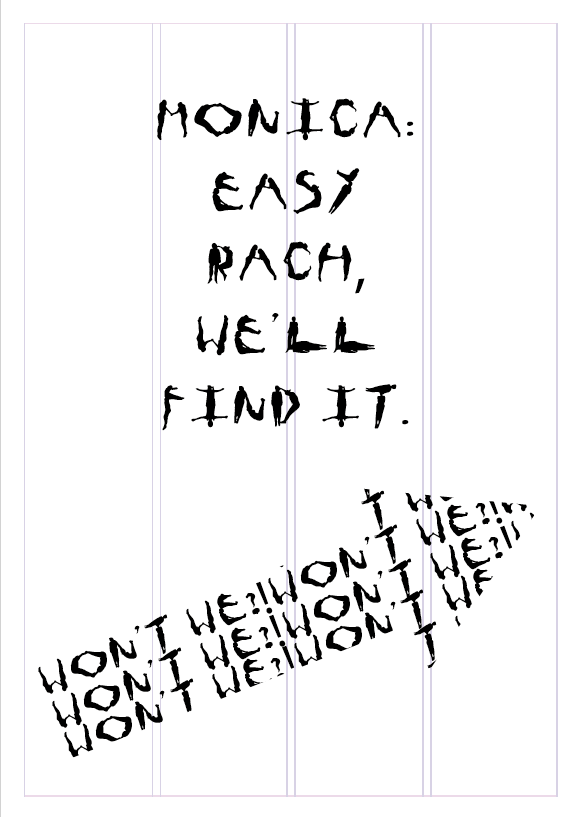 MONICA:
EASY
RACH,
WE'LL
FIND IT.
WON'T WE?!WON'T WE?!
WON'T WE?!WON'T WE?!
WON'T WE?!WON'T WE